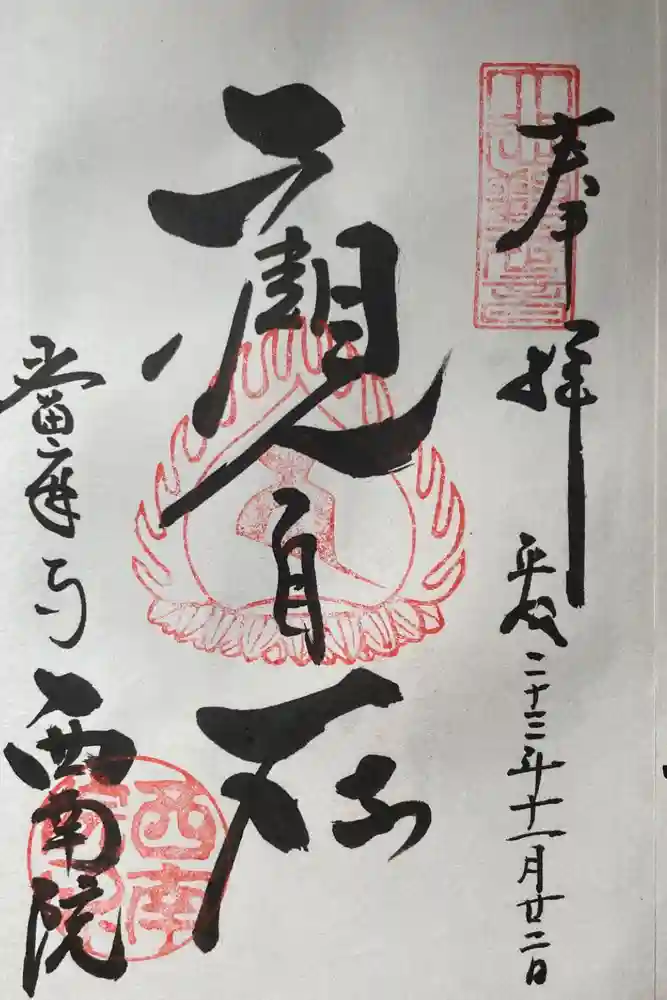 奉拝
平成二十三年十一月廿二日
觀自在
當麻寺
西南院
西南